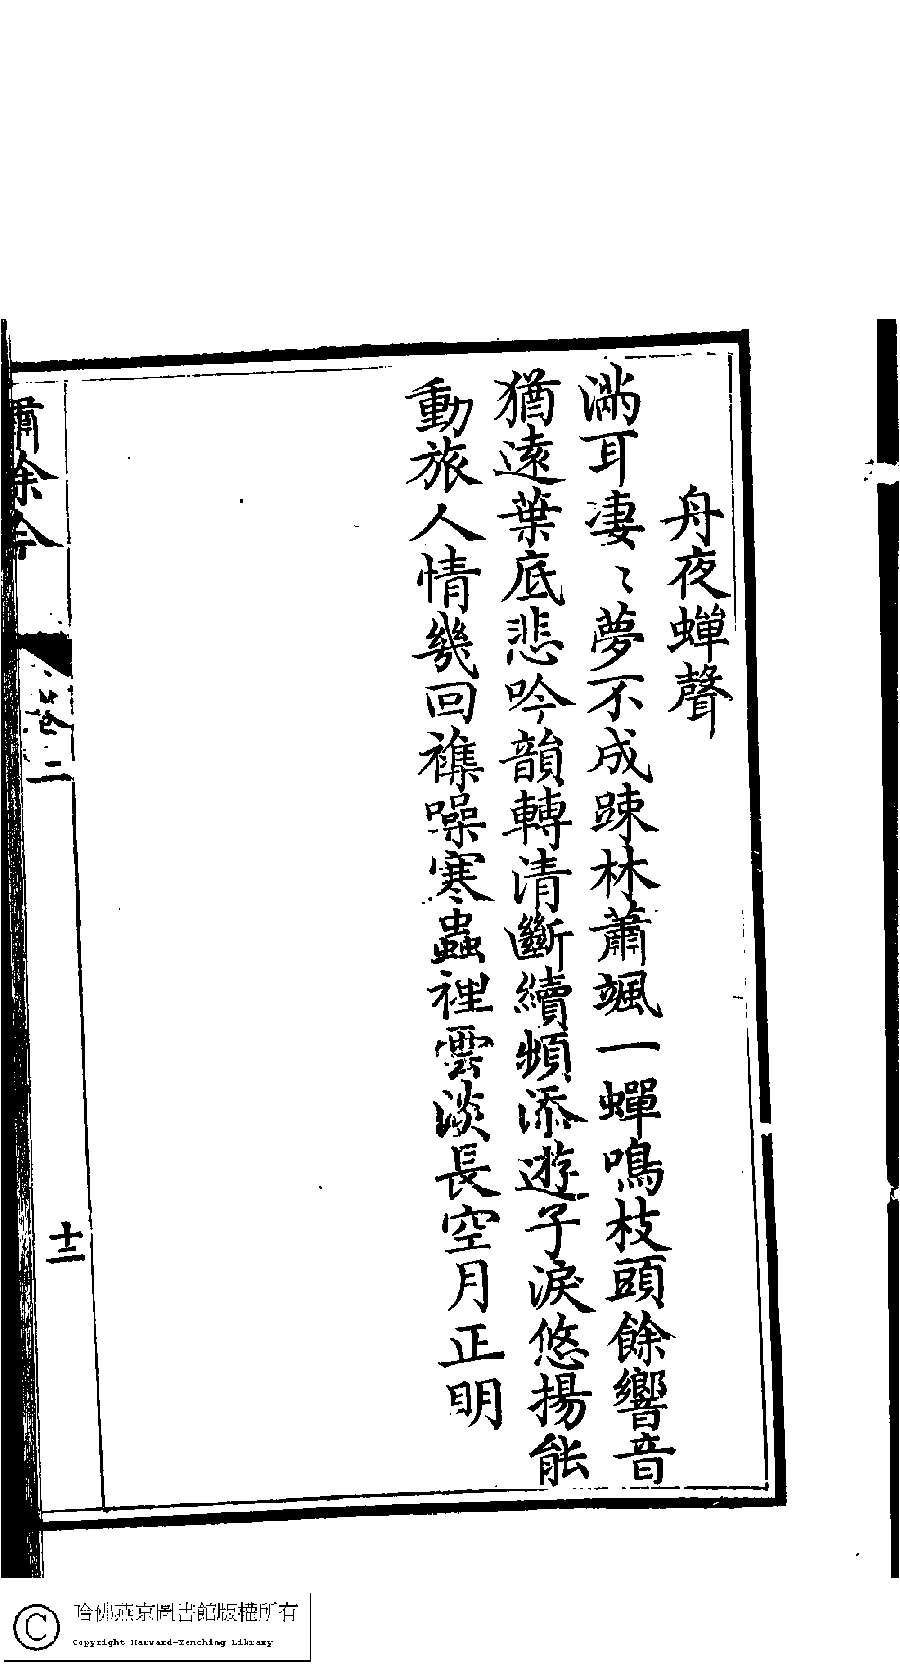 舟夜蟬聲
滿耳凄〻夢不成踈林蕭颯一蟬鳴枝頭餘響音
猶遠葉底悲吟韻轉清斷續頻添遊子淚悠揚能
動旅人情幾回襍噪寒蟲裡雲淡長空月正明
繡餘吟
卷二
十三
哈佛燕京圖書館版權所有
Copyright Harvard-Yenching Library